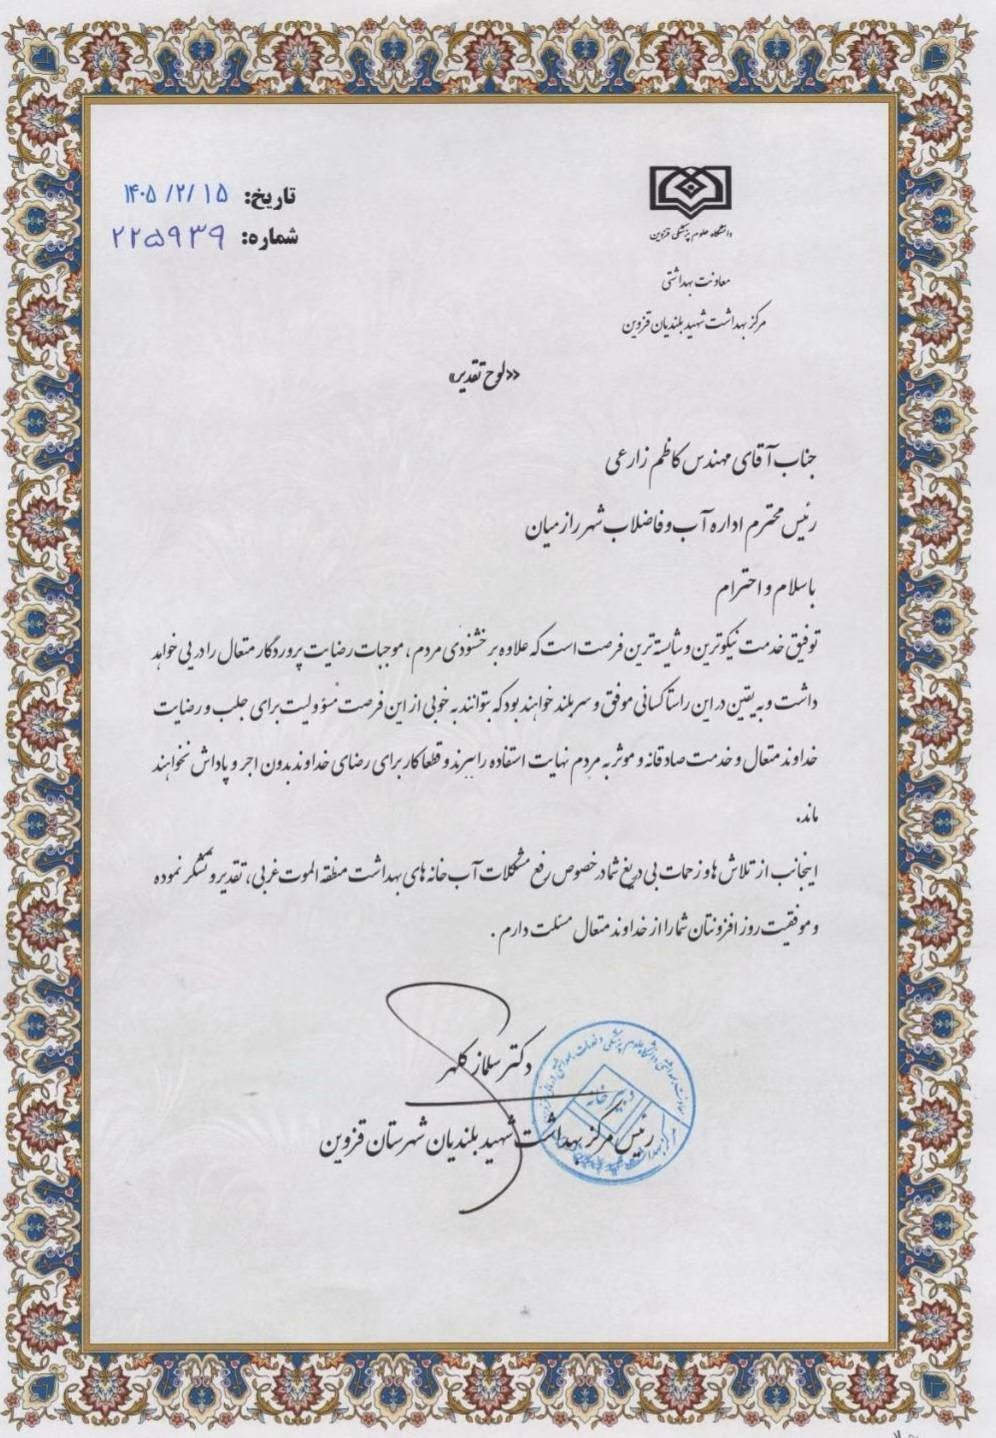 تاریخ: ۱۴۰۵ /۲/ ۱۵
شماره: ۲۲۵۹۳۹
دانشگاه علوم پزشکی قزوین
معاونت بهداشتی
مرکز بهداشت شهید بلندیان قزوین
«لوح تقدیر»
جناب آقای مهندس کاظم زارعی
رئیس محترم اداره آب و فاضلاب شهر رازمیان
باسلام و احترام
توفیق خدمت نیکوترین و شایسته ترین فرصت است که علاوه بر خشنودی مردم ، موجبات رضایت پروردگار متعال را در پی خواهد
داشت و به یقین در این راستا کسانی موفق و سربلند خواهند بود که بتوانند به خوبی از این فرصت مسؤولیت برای جلب و رضایت
خداوند متعال و خدمت صادقانه و موثر به مردم نهایت استفاده را ببرند و قطعا کار برای رضای خداوند بدون اجر و پاداش نخواهند
ماند.
اینجانب از تلاش ها و زحمات بی دریغ شما در خصوص رفع مشکلات آب خانه های بهداشت منطقه الموت غربی، تقدیر و تشکر نموده
و موفقیت روز افزونتان شما را از خداوند متعال مسئلت دارم .
دکتر سلماز کلهر
رئیس مرکز بهداشت شهید بلندیان شهرستان قزوین
دبیرخانه